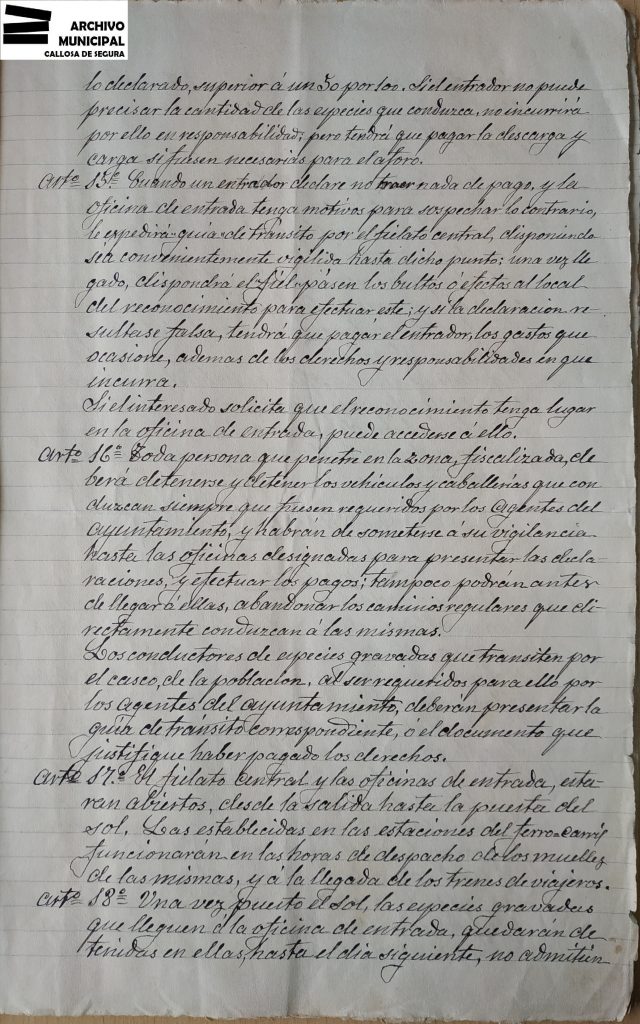 ARCHIVO
MUNICIPAL
CALLOSA DE SEGURA
lo declarado, superior á un 50 por 100. Si el entrador no puede
precisar la cantidad de las especies que conduzca, no incurrirá
por ello en responsabilidad; pero tendrá que pagar la descarga y
carga si fuesen necesarias para el aforo.
Artº 15º Cuando un entrador declare no traer nada de pago, y la
oficina de entrada tenga motivos para sospechar lo contrario,
le expedirá guia de tránsito por el fielato central, disponiendo
sea convenientemente vigilida hasta dicho punto; una vez lle
gado, dispondrá el Fiel, pasen los bultos ó efectos al local
del reconocimiento para efectuar este; y si la declaracion re
sultase falsa, tendrá que pagar el entrador, los gastos que
ocasione, ademas de los derechos y responsabilidades en que
incurra.
Si el interesado solicita que el reconocimiento tenga lugar
en la oficina de entrada, puede accederse á ello.
Artº 16º Toda persona que penetre en la zona, fiscalizada, de
berá detenerse y detener los vehiculos y caballerías que con
duzcan siempre que fuesen requeridos por los Agentes del
Ayuntamiento, y habrán de someterse á su vigilancia
hasta las oficinas designadas para presentar las decla
raciones, y efectuar los pagos; tampoco podrán antes
de llegar á ellas, abandonar los caminos regulares que di
rectamente conduzcan á las mismas.
Los conductores de especies gravadas que transiten por
el casco, de la poblacion, al ser requeridos para ello por
los Agentes del Ayuntamiento, deberán presentar la
guía de tránsito correspondiente, ó el documento que
justifique haber pagado los derechos.
Artº 17º El fielato Central y las oficinas de entrada, esta
ran abiertos, desde la salida hasta la puesta del
sol. Las establecidas en las estaciones del ferro-carril
funcionarán en las horas de despacho de los muelles
de las mismas, y á la llegada de los trenes de viajeros.
Artº 18º Una vez puesto el sol, las especies gravadas
que lleguen á la oficina de entrada, quedarán de
tenidas en ellas, hasta el dia siguiente, no admitién